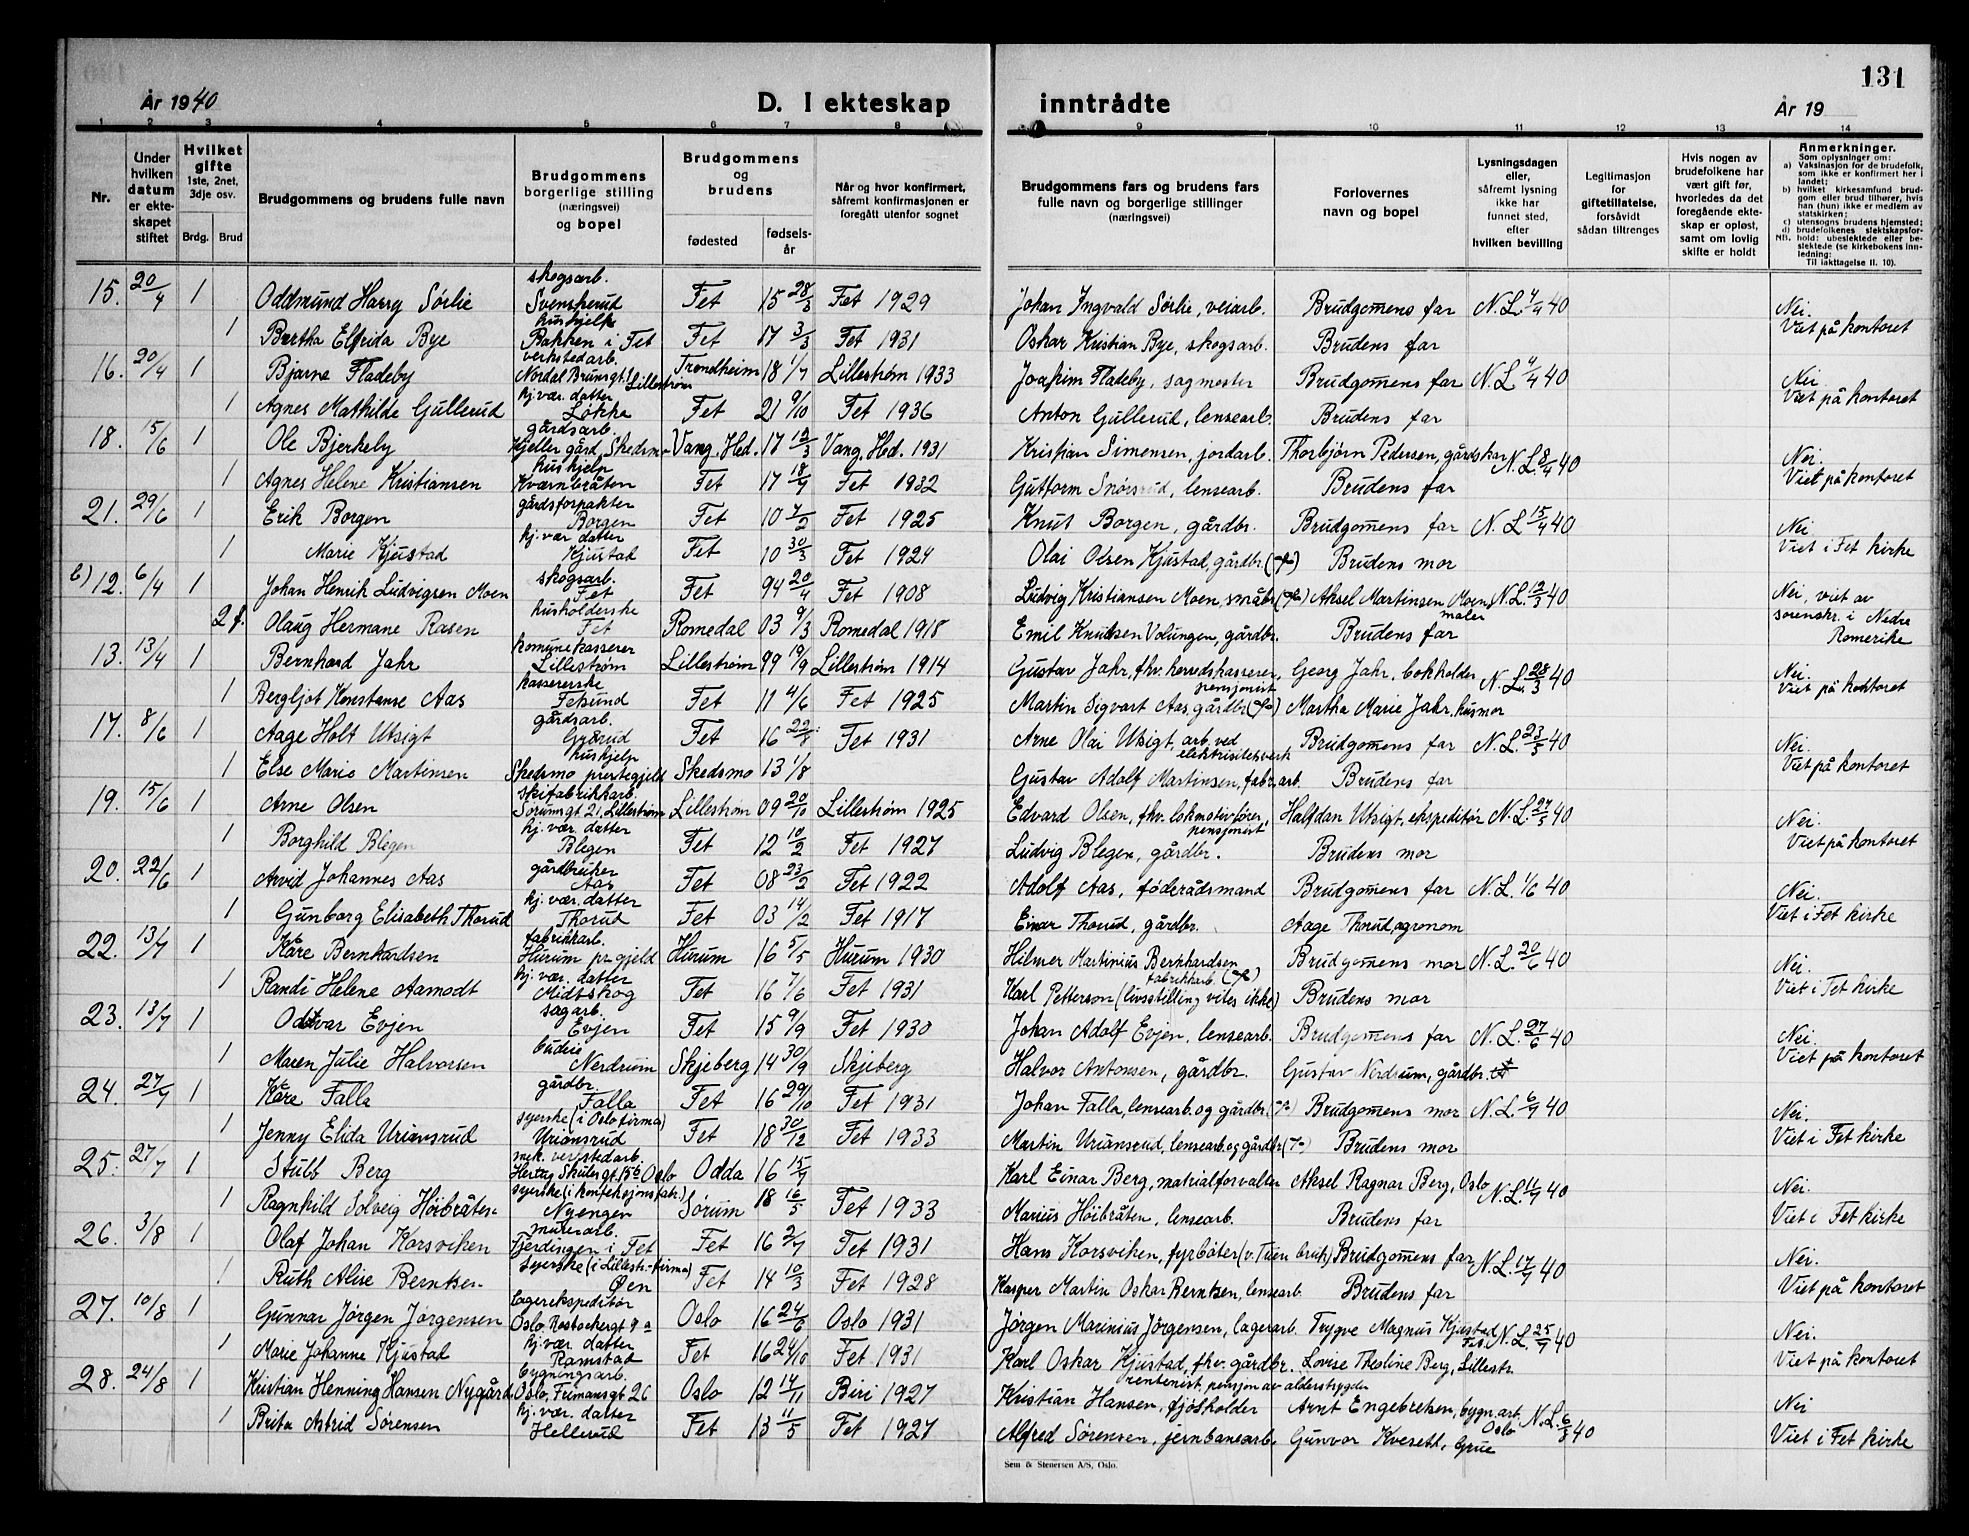 131
År 1940
D. I ekteskap inntrådte
År 19
1 2 3 4 5 6 7 8 9 10 11 12 13 14
Nr.
Under hvilken datum er ekteskapet stiftet
Hvilket gifte 1ste, 2net, 3dje osv.
Brdg. Brud
Brudgommens og brudens fulle navn
Brudgommens borgerlige stilling (næringsvei) og bopel
Brudgommens og brudens
fødested fødselsår
Når og hvor konfirmert, såfremt konfirmasjonen er foregått utenfor sognet
Brudgommens fars og brudens fars fulle navn og borgerlige stillinger (næringsvei)
Forlovernes navn og bopel
Lysningsdagen eller, såfremt lysning ikke har funnet sted, efter hvilken bevilling
Legitimasjon for giftetillatelse, forsåvidt sådan tiltrenges
Hvis nogen av brudefolkene har vært gift før, hvorledes da det foregående ekteskap er opløst, samt om lovlig skifte er holdt
Anmerkninger.
Som oplysninger om:
a) Vaksinasjon for de brudefolk, som ikke er konfirmert her i landet;
b) hvilket kirkesamfund brudgom eller brud tilhører, hvis han (hun) ikke er medlem av statskirken;
c) utensogns brudens hjemsted;
d) brudefolkenes slektskapsforhold: ubeslektede eller beslektede (se kirkebokens innledning:
NB. Til iakttagelse II. 10).
15. 20/4 1 Oddmund Harry Sørlie skogsarb. Svenskerud Fet 15 28/3 Fet 1929 Johan Ingvald Sørlie, veiarb. Brudgomens far N.L. 4/4 40 Nei.
1 Bertha Elfrida Bye hushjelp Bakken i Fet Fet 17 3/3 Fet 1931 Oskar Kristian Bye, skogsarb. Brudens far Viet på kontoret
16. 20/4 1 Bjarne Fladeby verkstedarb. Nordal Brunsgt. 1 Lillestrøm Trondheim 18 1/7 Lillestrøm 1933 Joakim Fladeby, sagmester Brudgomens far N.L. 4/4 40 Nei
1 Agnes Mathilde Gullerud hj.vær. datter Løkka Fet 21 9/10 Fet 1936 Anton Gullerud, lensearb. Brudens far Viet på kontoret
18. 15/6 1 Ole Bjerkely gårdsarb. Kjeller gård, Skedsmo Vang, Hed. 17 12/3 Vang, Hed. 1931 Kristian Simensen, jordarb. Thorbjørn Pedersen, gårdskar N.L. 8/4 40 Nei.
1 Agnes Helene Kristiansen hushjelp Kværnbråten Fet 17 18/7 Fet 1932 Guttorm Snørsrud, lensearb. Brudens far Viet på kontoret
21. 29/6 1 Erik Borgen gårdsforpakter Borgen Fet 10 7/2 Fet 1925 Knut Borgen, gårdbr. Brudgomens far N.L. 15/4 40 Nei
1 Marie Kjustad hj. vær datter Kjustad Fet 10 30/3 Fet 1924 Olai Olsen Kjustad, gårdbr. Brudens mor Viet i Fet kirke
b) 12. 6/4 1 Johan Henrik Ludvigsen Moen skogsarb. Fet Fet 94 20/4 Fet 1908 Ludvig Kristiansen Moen, småbr. Aksel Martinsen Moen, maler N.L. 12/3 40 Nei, viet av
2 f. Olaug Hermane Rasen husholderske Fet Romedal 03 9/3 Romedal 1918 Emil Knutsen Volungen, gårdbr. Brudens far sorenskr. i Nedre Romerike
13. 13/4 1 Bernhard Jahr komunekasserer Lillestrøm Lillestrøm 99 19/9 Lillestrøm 1914 Gustav Jahr, fhv. herredskasserer, pensjonist Georg Jahr, bokholder N.L. 28/3 40 Nei.
1 Bergljot Konstanse Aas kassererske Fetsund Fet 11 4/6 Fet 1925 Martin Sigvart Aas, gårdbr. Martha Marie Jahr, husmor Viet på kontoret
17. 8/6 1 Aage Holt Utsigt gårdsarb. Fet 16 22/8 Fet 1931 Arne Olai Utsigt, arb. ved elektrisitetsverk Brudgomens far N.L. 23/5 40 Nei.
1 Else Marie Martinsen hushjelp Skedsmo prestegjeld Skedsmo 13 1/8 Gustav Adolf Martinsen, fabr.arb. Brudens far Viet på kontoret
19. 15/6 1 Arne Olsen skifabrikkarb. Sørumsgt 21, Lillestrøm Lillestrøm 09 20/10 Lillestrøm 1925 Edvard Olsen, fhv. lokomotivfører, pensjonist Halfdan Utsigt, ekspeditør N.L. 27/5 40 Nei.
1 Borghild Blegen hj. vær. datter Blegen Fet 12 10/2 Fet 1927 Ludvig Blegen, gårdbr. Brudens mor Viet på kontoret
20. 22/6 1 Arvid Johannes Aas gårdbruker Aas Fet 08 23/2 Fet 1922 Adolf Aas, føderådsmand Brudgomens far N.L. 1/6 40 Nei.
1 Gunborg Elisabeth Thorud hj. vær. datter Thorud Fet 03 14/2 Fet 1917 Einar Thorud, gårdbr. Aage Thorud, agronom Viet i Fet kirke
22. 13/7 1 Kåre Bernhardsen fabrikkarb. Hurum pr.gjeld Hurum 16 5/5 Hurum 1930 Hilmer Martinius Bernhardsen fabrikkarb. Brudgomens mor N.L. 20/6 40 Nei.
1 Randi Helene Aamodt hj. vær. datter Midtskog Fet 16 7/6 Fet 1931 Karl Petterson (livsstilling vites ikke) Brudens mor Viet i Fet kirke
23. 13/7 1 Oddvar Evjen sagarb. Evjen Fet 15 9/9 Fet 1930 Johan Adolf Evjen, lensearb. Brudgomens far N.L. 27/6 40 Nei.
1 Maren Julie Halvorsen budeie Nerdrum Skjeberg 14 30/9 Skjeberg Halvor Antonsen, gårdbr. Gustav Nordrum, gårdbr. Viet på kontoret
24. 27/7 1 Kåre Falla gårdbr. Falla Fet 16 29/10 Fet 1931 Johan Falla, lensearb. og gårdbr. Brudgomens mor N.L. 6/7 40 Nei.
1 Jenny Elida Uriansrud syerske (i Oslofirma) Uriansrud Fet 18 30/12 Fet 1933 Martin Uriansrud, lensearb. og gårdbr. Brudens mor Viet i Fet kirke
25. 27/7 1 Stubb Berg mek. verkstedarb. Hertug Skules gt. 15b Oslo Odda 16 15/7 Karl Einar Berg, matrialforvalter Aksel Ragnar Berg, Oslo N.L. 11/7 40 Nei.
1 Ragnhild Solveig Høibråten syerske (i konfeksjonsfabr.) Nyengen Sørum 18 16/5 Fet 1933 Marius Høibråten, lensearb. Brudens far Viet i Fet kirke
26. 3/8 1 Olaf Johan Korsviken murerarb. Fjerdingen i Fet Fet 16 2/7 Fet 1931 Hans Korsviken, fyrbøter (v. Tuen bruk) Brudgomens far N.L. 17/7 40 Nei.
1 Ruth Alise Berntsen syerske (i Lillestr.-firma) Øen Fet 14 10/3 Fet 1928 Kasper Martin Oskar Berntsen, lensearb. Brudens far Viet på kontoret
27. 10/8 1 Gunnar Jørgen Jørgensen lagerekspeditør Oslo, Rostockergt 9a Oslo 16 24/6 Oslo 1931 Jørgen Marinius Jörgensen, lagerarb. Trygve Magnus Kjustad, Fet N.L. 25/7 40 Nei.
1 Marie Johanne Kjustad hj. vær. datter Ramstad Fet 16 24/10 Fet 1931 Karl Oskar Kjustad, fhv. gårdbr. Lovise Theoline Berg, Lillestr. Viet på kontoret
rentenist, pensjon av alderstrygden
28. 24/8 1 Kristian Henning Hansen Nygård bygningsarb. Oslo, Frimansgt 26 Oslo 12 14/11 Biri 1927 Kristian Hansen, fjøsholder Arnt Engebretsen, bygn.arb. Oslo N.L. 6/8 40 Nei
1 Brita Astrid Sørensen hj. vær. datter Hellerud Fet 13 11/5 Fet 1927 Alfred Sørensen, jernbanearb. Gunvor Kveseth, Grue Viet i Fet kirke
Sem & Stenersen A/S, Oslo.